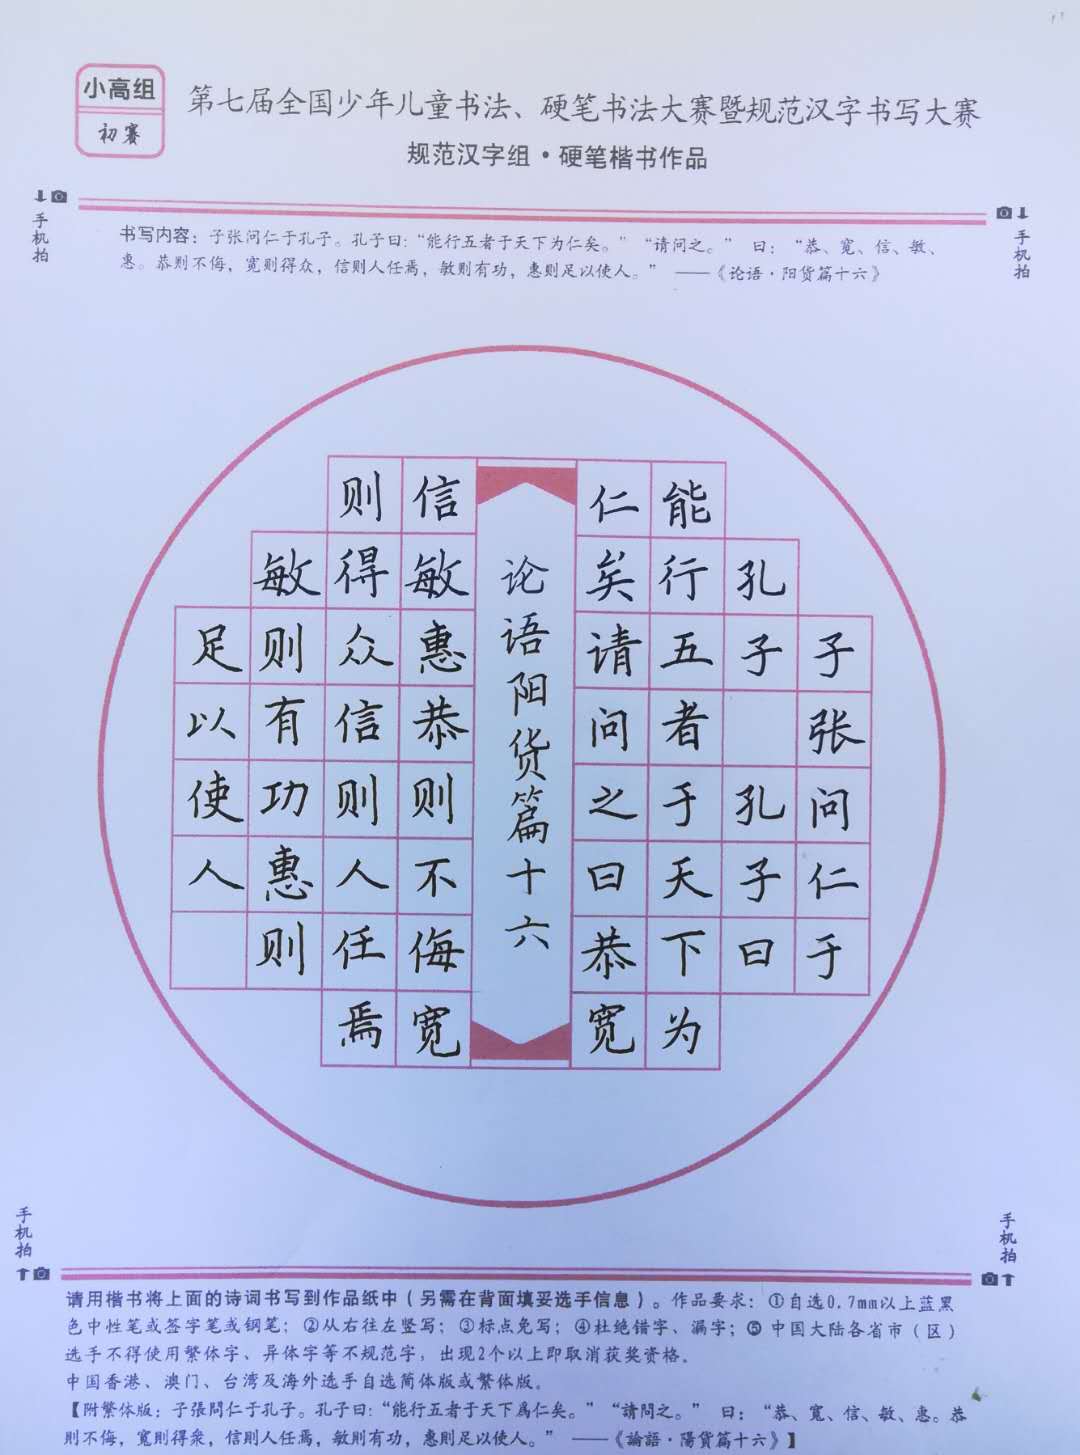 小高组
初赛
第七届全国少年儿童书法、硬笔书法大赛暨规范汉字书写大赛
规范汉字组·硬笔楷书作品
手机拍
手机拍
书写内容：子张问仁于孔子。孔子曰：“能行五者于天下为仁矣。”“请问之。” 曰：“恭、宽、信、敏、
惠。恭则不侮，宽则得众，信则人任焉，敏则有功，惠则足以使人。” ——《论语·阳货篇十六》
子张问仁于
孔子 孔子曰
能行五者于天下为
仁矣请问之曰恭宽
论语阳货篇十六
信敏惠恭则不侮宽
则得众信则人任焉
敏则有功惠则
足以使人
手机拍
手机拍
请用楷书将上面的诗词书写到作品纸中（另需在背面填妥选手信息）。作品要求：①自选0.7mm以上蓝黑
色中性笔或签字笔或钢笔；②从右往左竖写；③标点免写；④杜绝错字、漏字；⑤中国大陆各省市（区）
选手不得使用繁体字、异体字等不规范字，出现2个以上即取消获奖资格。
中国香港、澳门、台湾及海外选手自选简体版或繁体版。
【附繁体版：子張問仁于孔子。孔子曰：“能行五者于天下爲仁矣。”“請問之。” 曰：“恭、寬、信、敏、惠。恭
則不侮，寬則得衆，信則人任焉，敏則有功，惠則足以使人。” ——《論語·陽貨篇十六》】